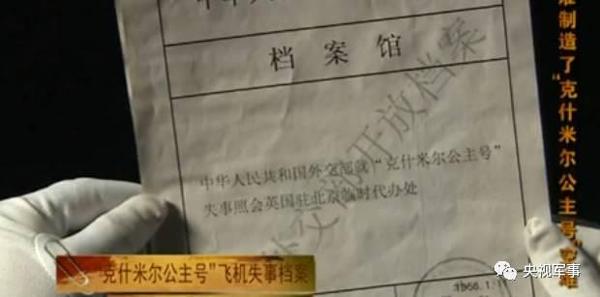 档案馆
中华人民共和国外交部就“克什米尔公主号”
失事照会英国驻北京临时代办处
开放档案
制造了“克什米尔公主号”
“克什米尔公主号”飞机失事档案
央视军事